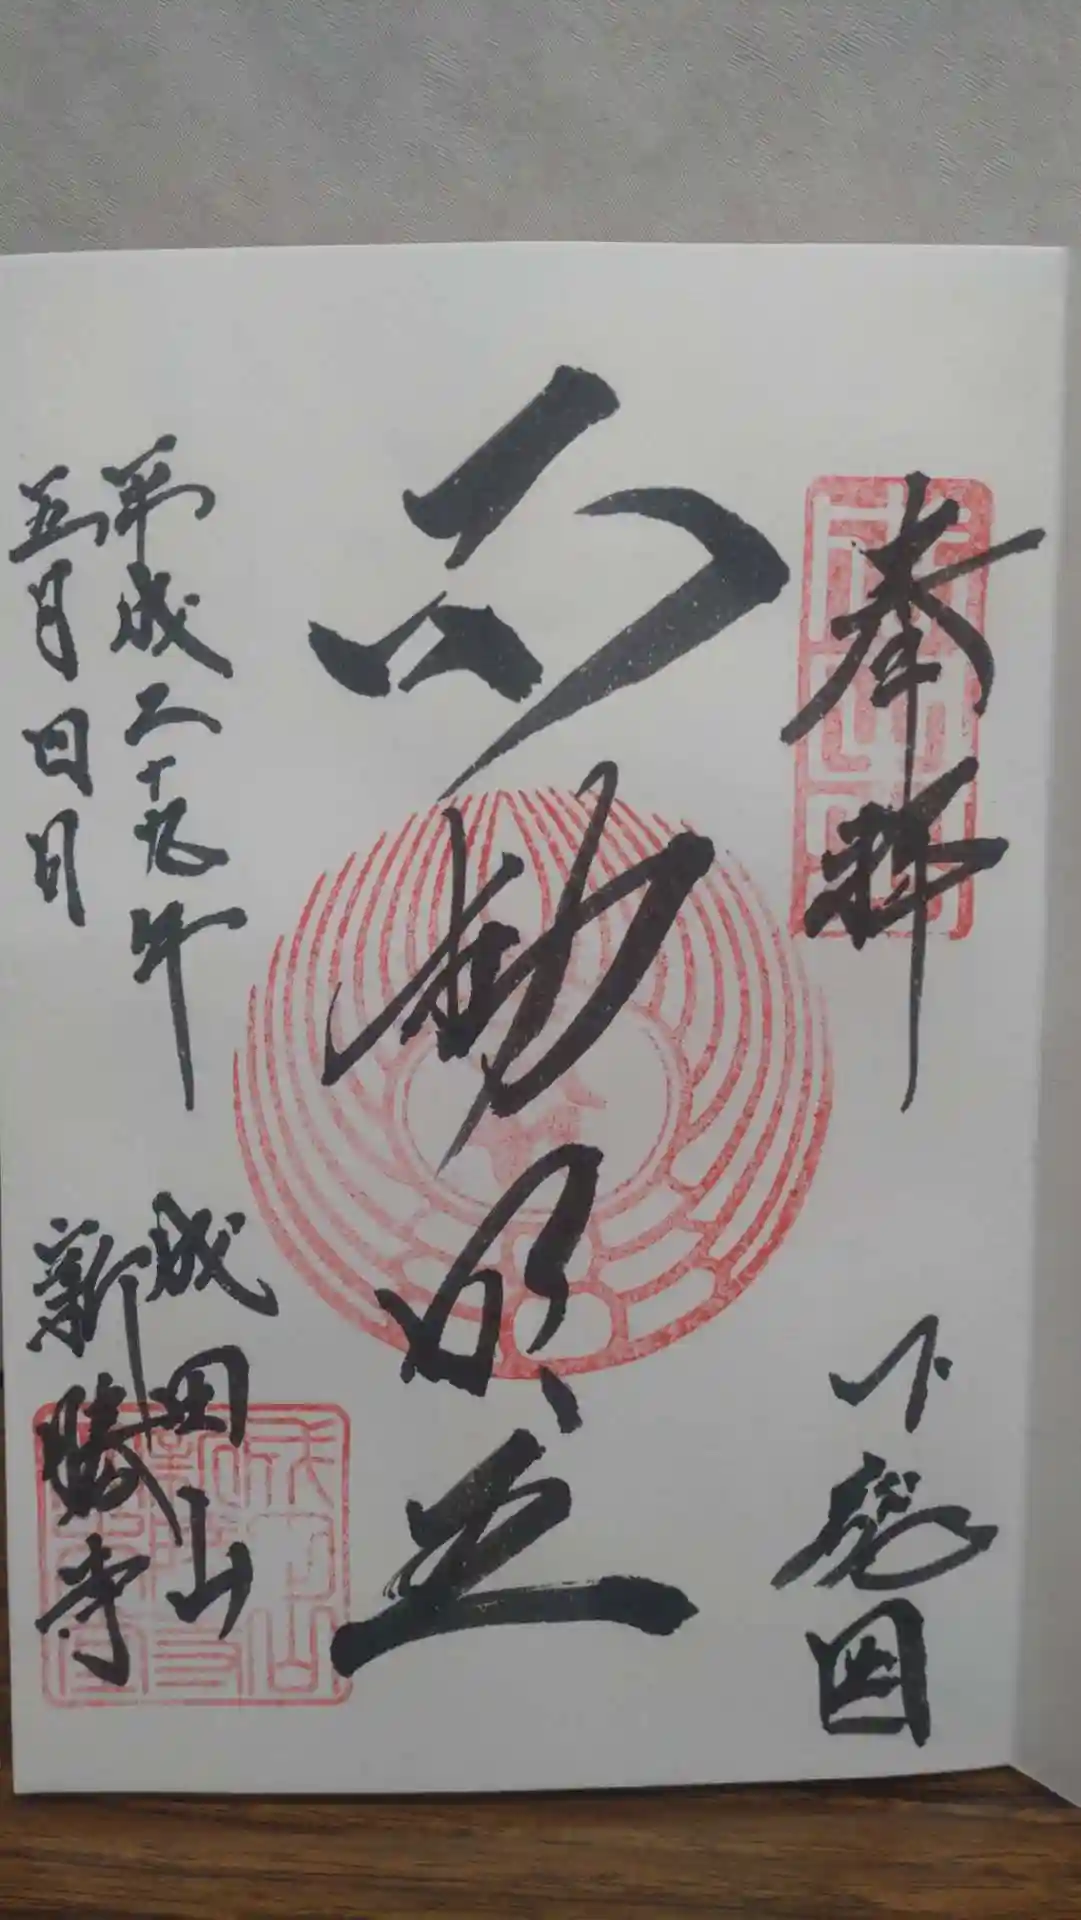 奉拝
下総国
不動明王
平成二十九年
五月四日
成田山
新勝寺